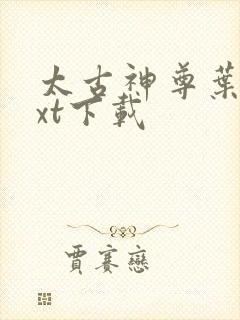 太古神尊葉
xt下載
賈賽戀